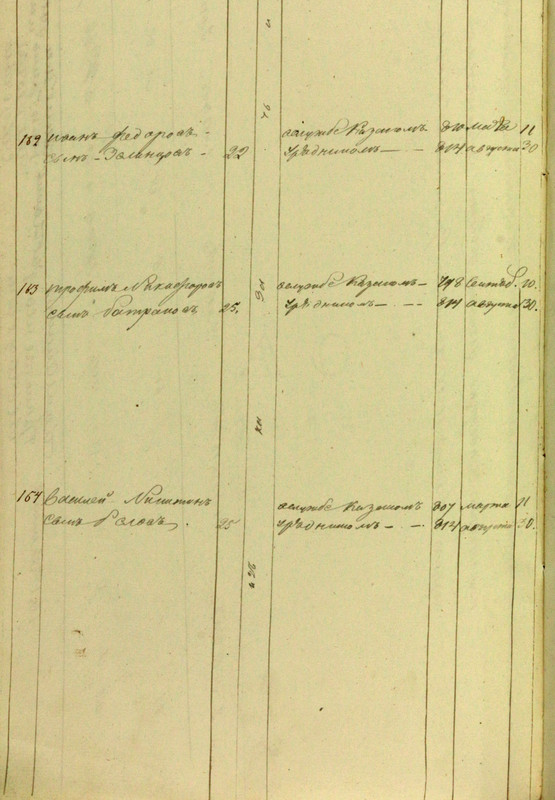 182 иванъ федоровъ 22 вслужбе казакомъ 11
сынъ урядникомъ 814 августа 30
183 трофимъ Никифоровъ вслужбе казакомъ 798 сентяб. 10.
сынъ батраковъ 25. урядникомъ 814 августа 30.
184 Василей Никитинъ вслужбе казакомъ 807 марта 11
сынъ 25 урядникомъ 814 августа 30.